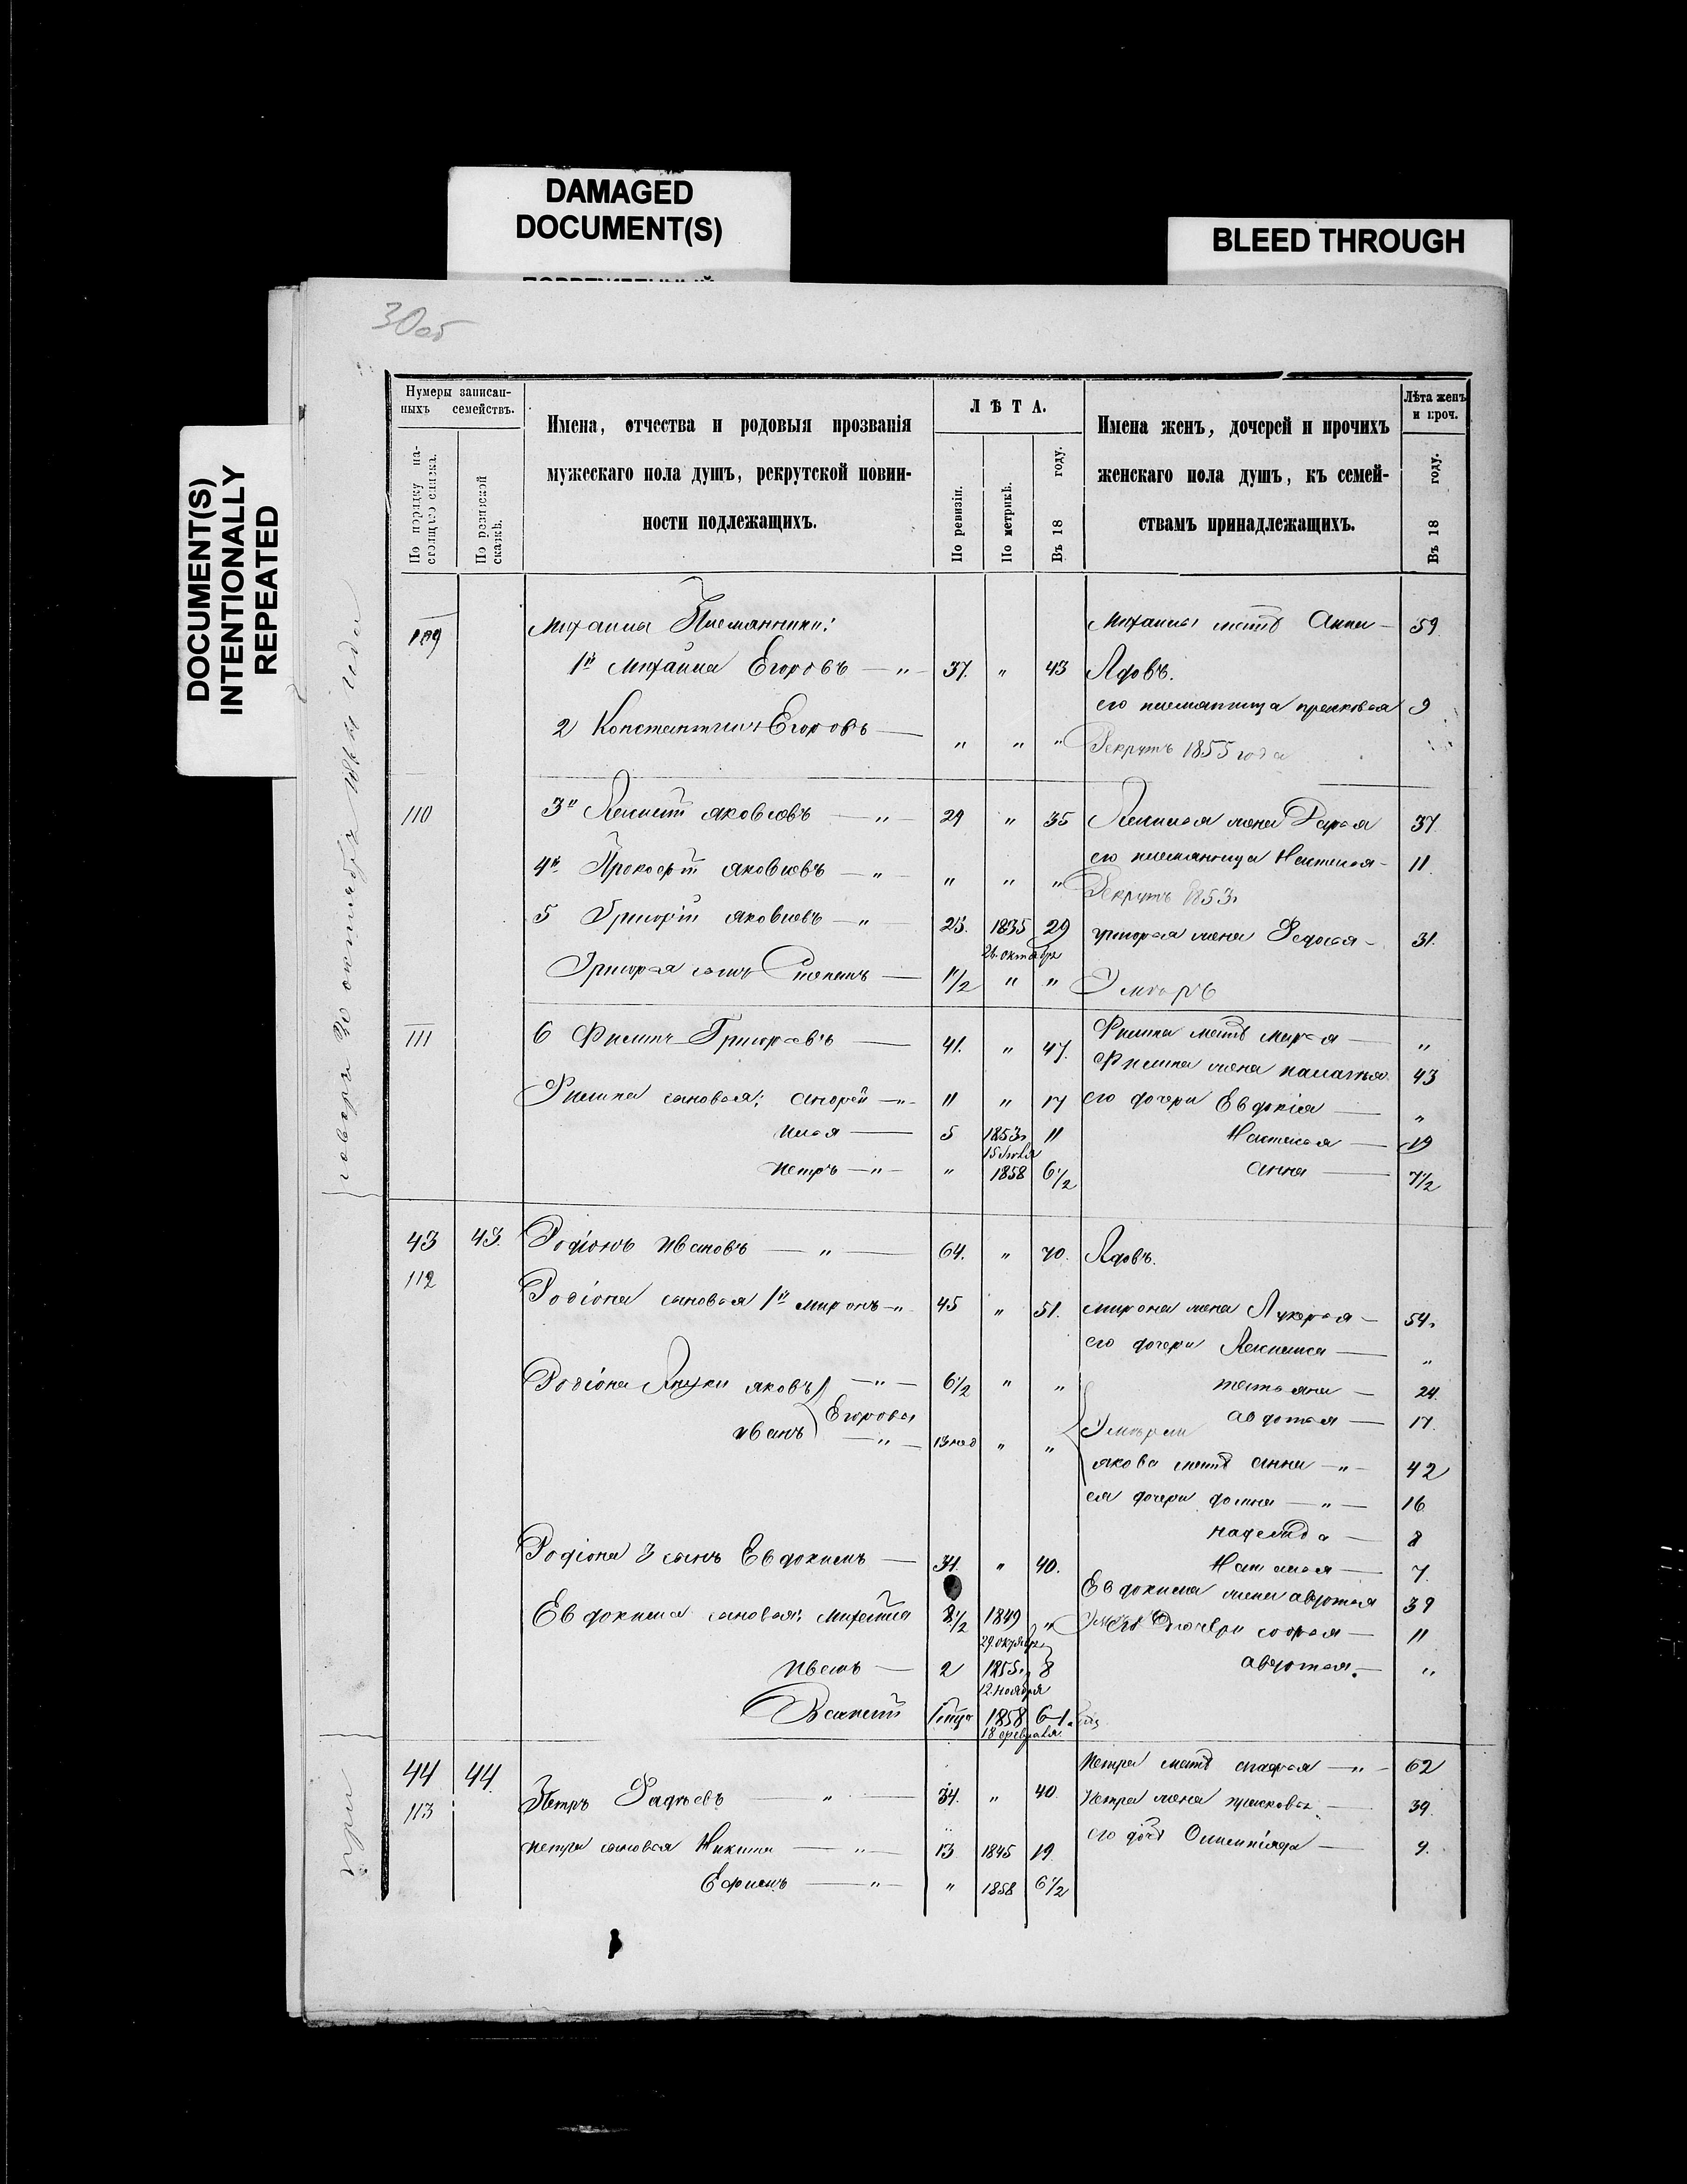 DAMAGED
DOCUMENT(S)
BLEED THROUGH
DOCUMENT(S)
INTENTIONALLY
REPEATED
30об
Нумеры записан-
ныхъ семействъ.
По порядку на-
стоящаго списка.
По ревизской
сказкѣ.
Имена, отчества и родовыя прозванія
мужескаго пола душъ, рекрутской повин-
ности подлежащихъ.
ЛѢТА.
По ревизіи.
По метрикѣ.
Въ 18 году.
Имена женъ, дочерей и прочихъ
женскаго пола душъ, къ семей-
ствамъ принадлежащихъ.
Лѣта женъ
и проч.
Въ 18 году.
109 Михаила Племянники: Михаилы мать Анна — 59.
1й Михаила Егоровъ — " — 37. " 43 Вдовъ.
его племянница 9
2 Константинъ Егоровъ — " " " Рекрутъ 1855 года
110 3й Яковлевъ — " — 29 " 35 жена Дарья 37
его племянница Наталья — 11.
4й Прокофій Яковлевъ — " — " " " Рекрутъ 1853
5 Григорій Яковлевъ — " 23. 1835 29 Григорья жена Федосья — 31.
26 октября
Григорья сынъ — 1 1/2 " " Умеръ
111 6 Филипъ Григорьевъ — 41. " 47. Филипа мать Марья — "
Филипа жена Палагѣя 43
Филипа сыновья: Андрей — " — 11 " 17 его дочери Евдокія — "
Илья — 5 1853 11 Наталья — 19
15 Іюля
Петръ — " — " 1858 6 1/2 Анна — 7 1/2
43 43. Родіонъ Ивановъ — " — 64. " 70. Вдовъ.
112 Родіона сыновья 1й Миронъ — " 45 " 51. Мирона жена Лукерья — 54.
его дочери — "
Родіона Внуки Яковъ — " — 6 1/2 " " Татьяна — 24.
Егоровы Авдотья — 17.
Иванъ — " — 13 нед " " Умерли
Якова мать Анна — " — 42
ея дочери Домна — " — 16
Надежда — 8
Родіона 3 сынъ Евдокимъ — 34. " 40. Наталья — 7.
Евдокима жена Авдотья 39
Евдокима сыновья: 8 1/2 1849 " дочери Софья — 11
29. октября
Иванъ — 2 1855 8 Авдотья. — "
12. ноября
Василій 1858 6
18 февраля.
44 44. Петра мать — " — 62
113 Петръ Фадѣевъ — " — 34. " 40. Петра жена Прасковья — 39.
Петра сыновья Никита — " — 13 1845 19 его дочь Олимпіяда — 9.
Ефимъ — " — " 1858 6 1/2
говора 30 октября 1864 года
при